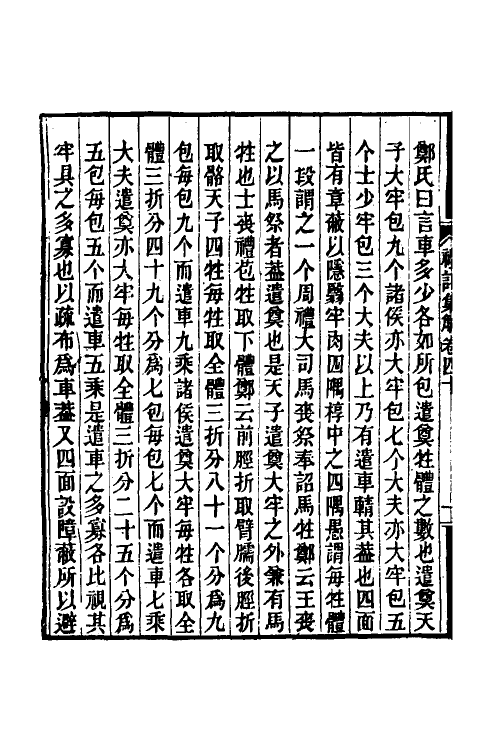 鄭氏曰言車多少各如所包遣奠牲體之數也遣奠天
子大牢包九个諸侯亦大牢包七个大夫亦大牢包五
个士少牢包三个大夫以上乃有遣車輤其蓋也四面
皆有章蔽以隱翳牢肉四隅椁中之四隅愚謂每牲體
一段謂之一个周禮大司馬喪祭奉詔馬牲鄭云王喪
之以馬祭者蓋遣奠也是天子遣奠大牢之外兼有馬
牲也士喪禮苞牲取下體鄭云前脛折取臂臑後脛折
取骼天子四牲每牲取全體三折分八十一个分爲九
包每包九个而遣車九乘諸侯遣奠大牢每牲各取全
體三折分四十九个分爲七包每包七个而遣車七乘
大夫遣奠亦大牢每牲取全體三折分二十五个分爲
五包每包五个而遣車五乘是遣車之多寡各比視其
牢具之多寡也以疏布爲車蓋又四面設障蔽所以避
禮記集解卷四十